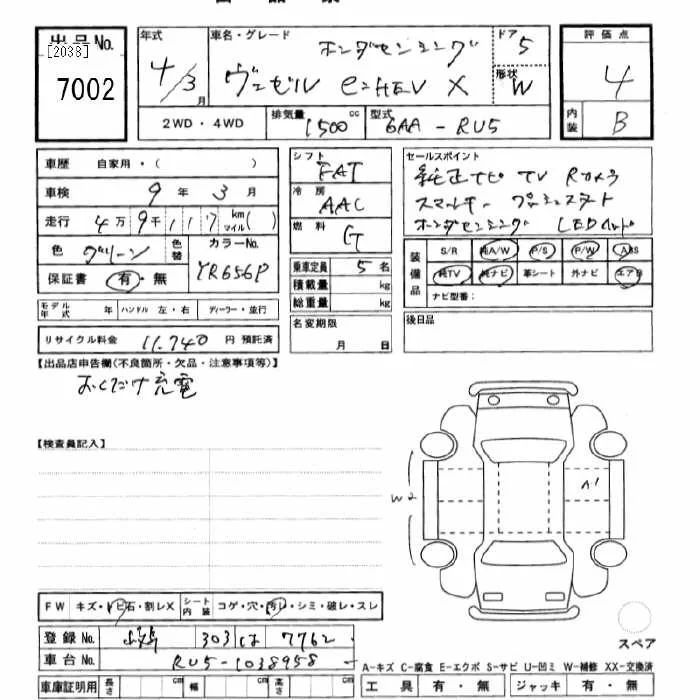 出品No.
[2038]
7002
年式 4/3月
車名・グレード ホンダセンシング
ヴェゼル e:HEV X
ドア 5
形状 W
評価点 4
内装 B
2WD・4WD
排気量 1500 cc
型式 6AA - RU5
車歴 自家用・( )
車検 9年 3月
走行 4万9千117 km マイル( )
色 グリーン 色替
カラーNo. YR656P
保証書 有・無
モデル年式 年 ハンドル 左・右 ディーラー・並行
リサイクル料金 11,740 円 預託済
シフト FAT
冷房 AAC
燃料 G
乗車定員 5名
積載量 kg
総重量 kg
名変期限 月 日
セールスポイント
純正ナビ TV Rカメラ
スマートキー プッシュスタート
ホンダセンシング LED
装備品
S/R 純A/W P/S P/W ABS
純TV 純ナビ 革シート 外ナビ エアB
ナビ型番:
後日品
【出品店申告欄(不良箇所・欠品・注意事項等)】
おくだけ充電
【検査員記入】
W2
A1
FW キズ・トビ石・割レX
シート内装 コゲ・穴・汚レ・シミ・破レ・スレ
登録No. 303 は 7762
車台No. RU5-1038958
車庫証明用 長さ cm 幅 cm 高さ cm
スペア
A-キズ C-腐食 E-エクボ S-サビ U-凹ミ W-補修 XX-交換済
工具 有・無 ジャッキ 有・無